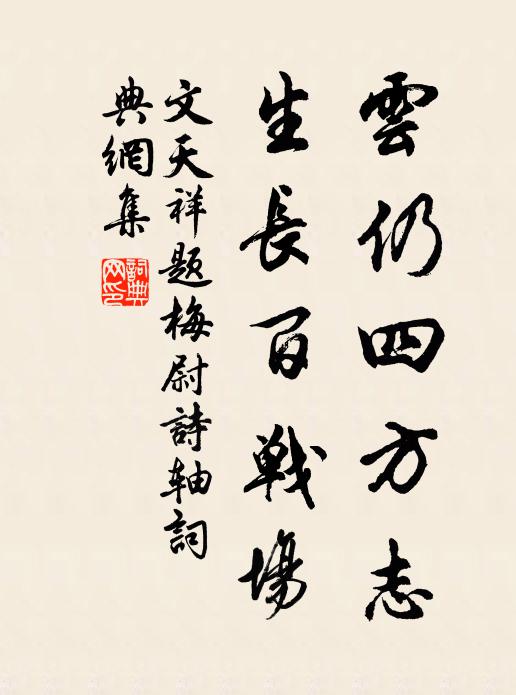 雲仍四方志
生長百戰場
文天祥題梅尉詩轴詞
典網集
詞典網印